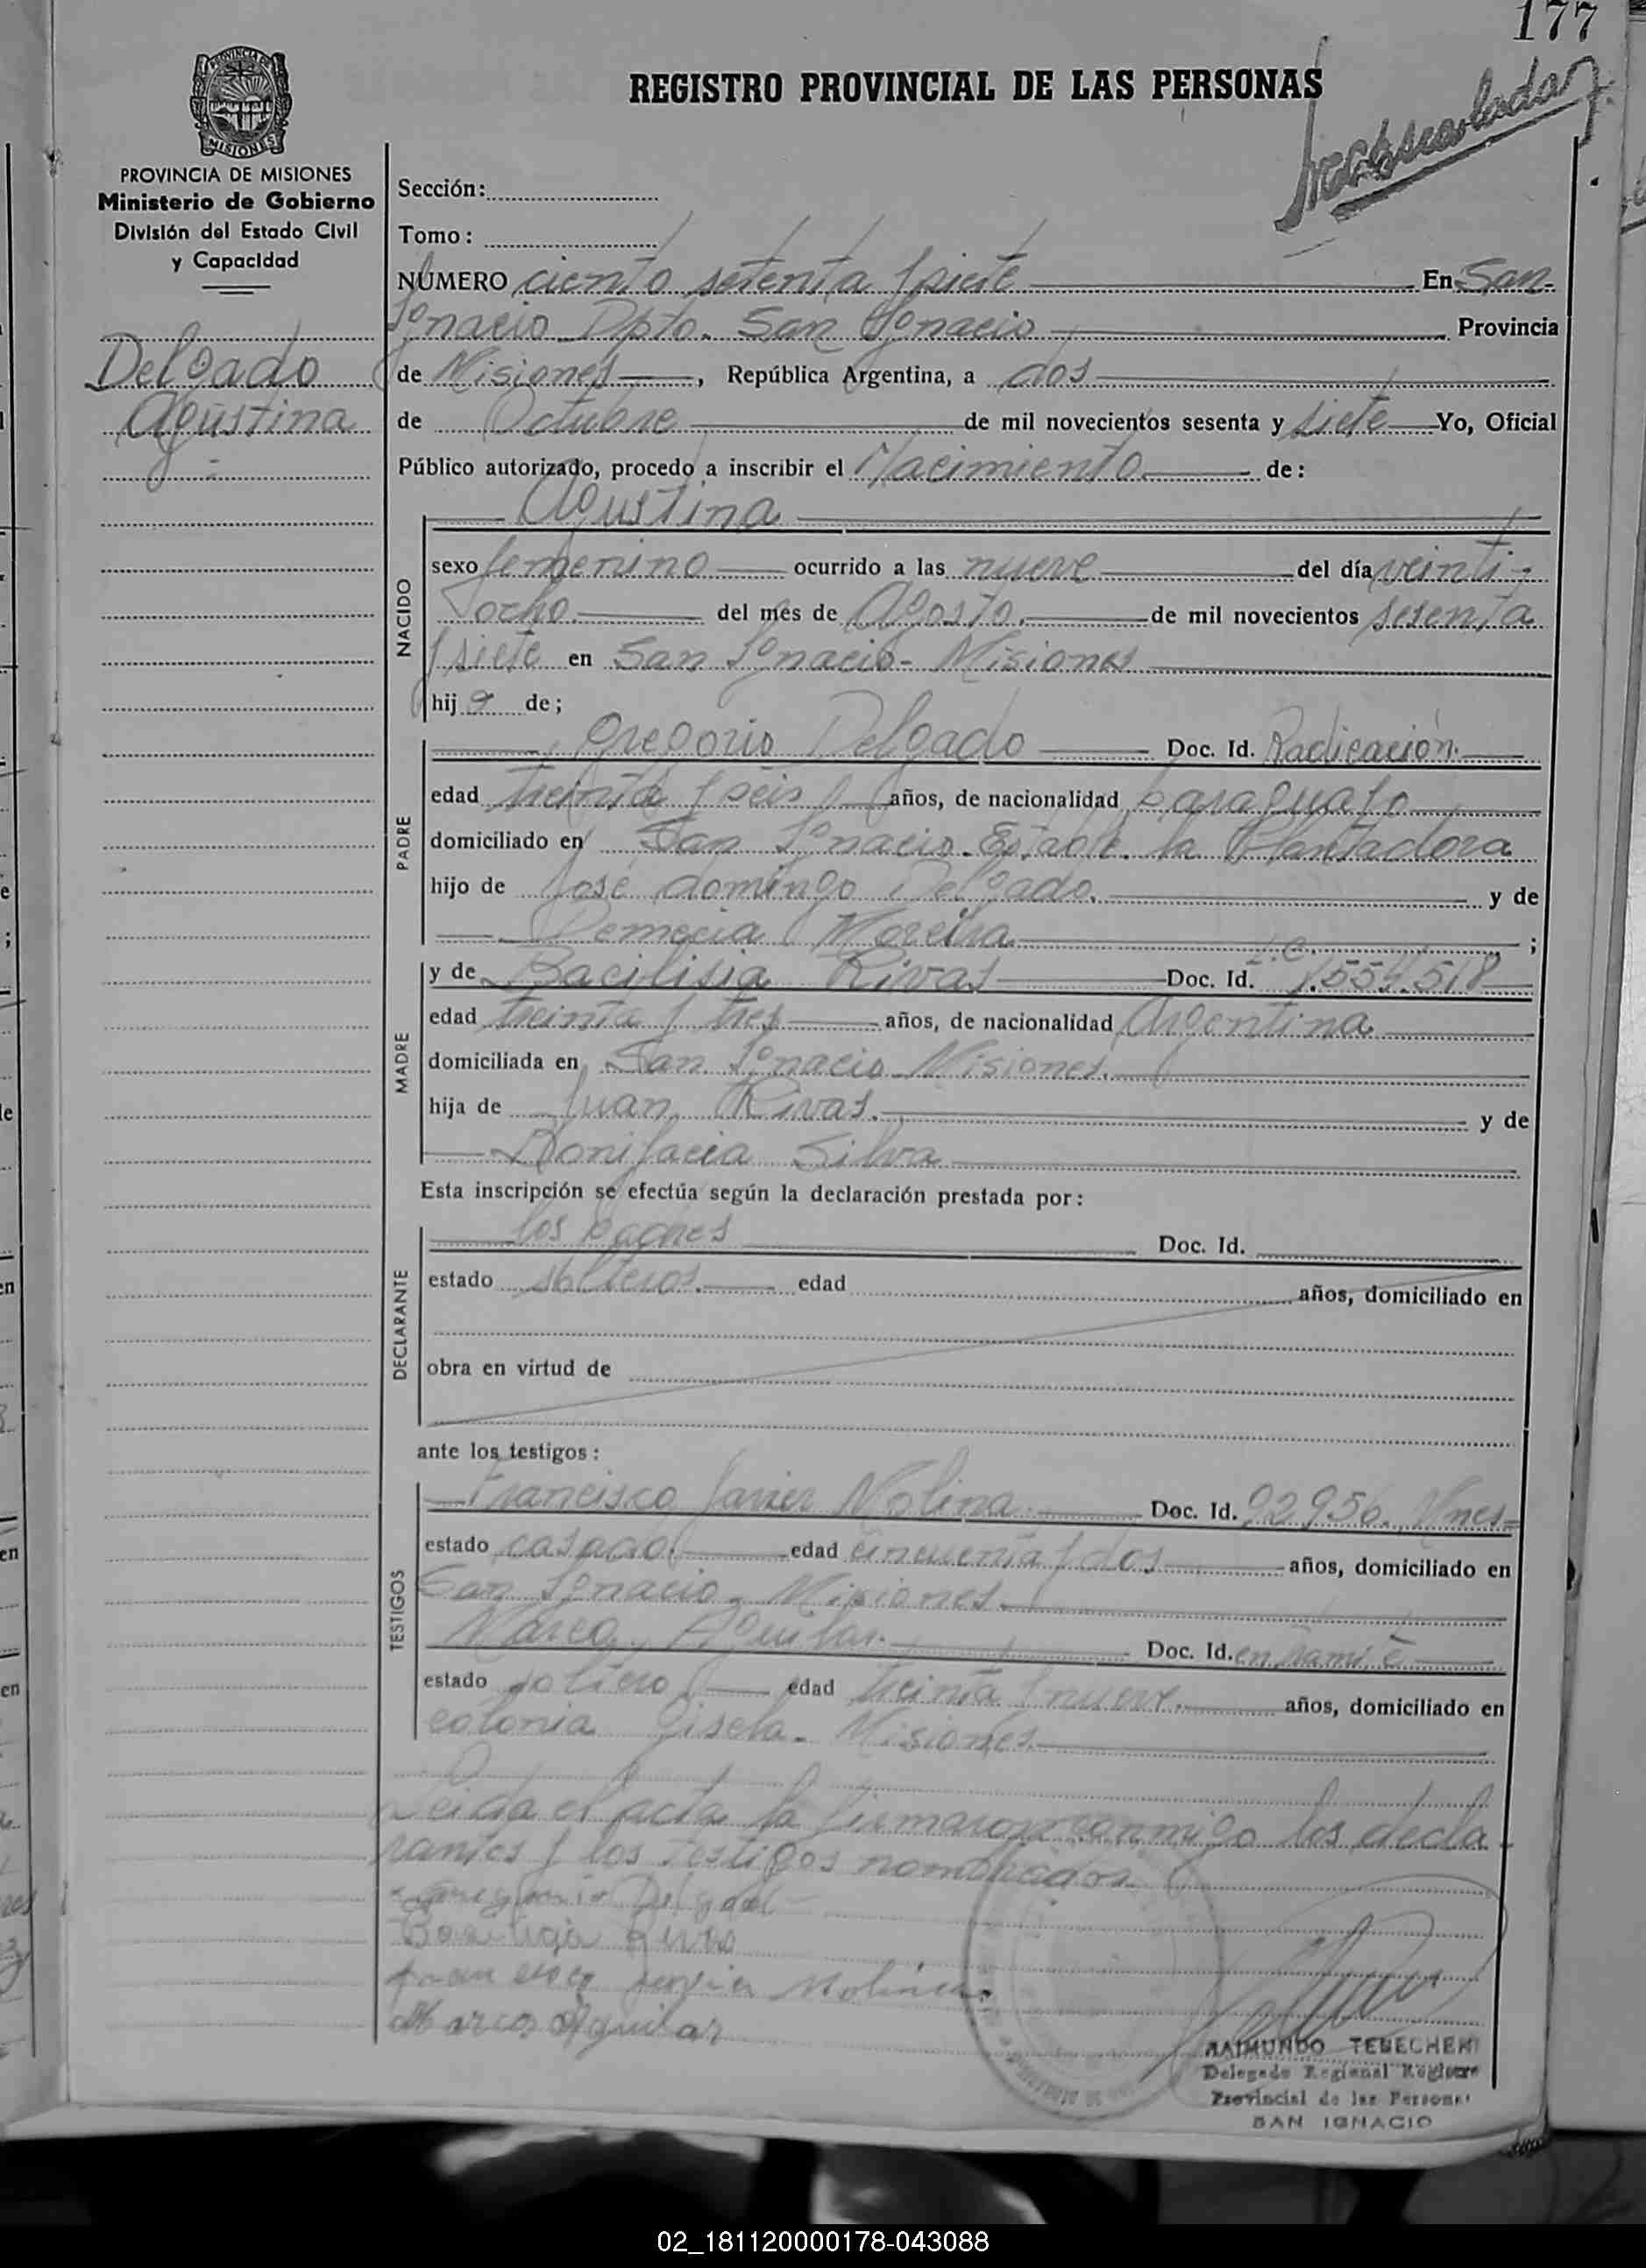 177
REGISTRO PROVINCIAL DE LAS PERSONAS
MISIONES
PROVINCIA DE MISIONES
Ministerio de Gobierno
División del Estado Civil
y Capacidad
Delgado
Agustina
Sección:
Tomo:
NÚMERO ciento setenta y siete En San
Ignacio Dpto. San Ignacio Provincia
de Misiones, República Argentina, a dos
de Octubre de mil novecientos sesenta y siete Yo, Oficial
Público autorizado, procedo a inscribir el Nacimiento de:
Agustina
NACIDO
sexo femenino ocurrido a las nueve del día veinti-
ocho del mes de Agosto. de mil novecientos sesenta
y siete en San Ignacio - Misiones
hija de;
PADRE
Gregorio Delgado Doc. Id. Radicación.
edad treinta y seis años, de nacionalidad paraguayo
domiciliado en San Ignacio. la Plantadora
hijo de José domingo Delgado. y de
Moreira ;
MADRE
y de Bacilisia Rivas Doc. Id. 1.554.518
edad treinta y tres años, de nacionalidad Argentina
domiciliada en San Ignacio Misiones.
hija de Juan Rivas. y de
Bonifacia Silva
Esta inscripción se efectúa según la declaración prestada por:
DECLARANTE
los padres Doc. Id.
estado solteros. edad años, domiciliado en
obra en virtud de
ante los testigos:
TESTIGOS
Francisco Javier Molina Doc. Id. 92956. Mnes=
estado casado. edad cincuenta y dos años, domiciliado en
San Ignacio - Misiones.
Marco Aguilar. Doc. Id. en tramite
estado soltero edad treinta y nueve. años, domiciliado en
colonia Gisela - Misiones.
Leida el acta la firmaron conmigo los decla-
rantes y los testigos nombrados.
Gregorio Delgado
Marcos Aguilar
RAIMUNDO TEBECHERI
Delegado Regional Registro
Provincial de las Personas
SAN IGNACIO
02_181120000178-043088